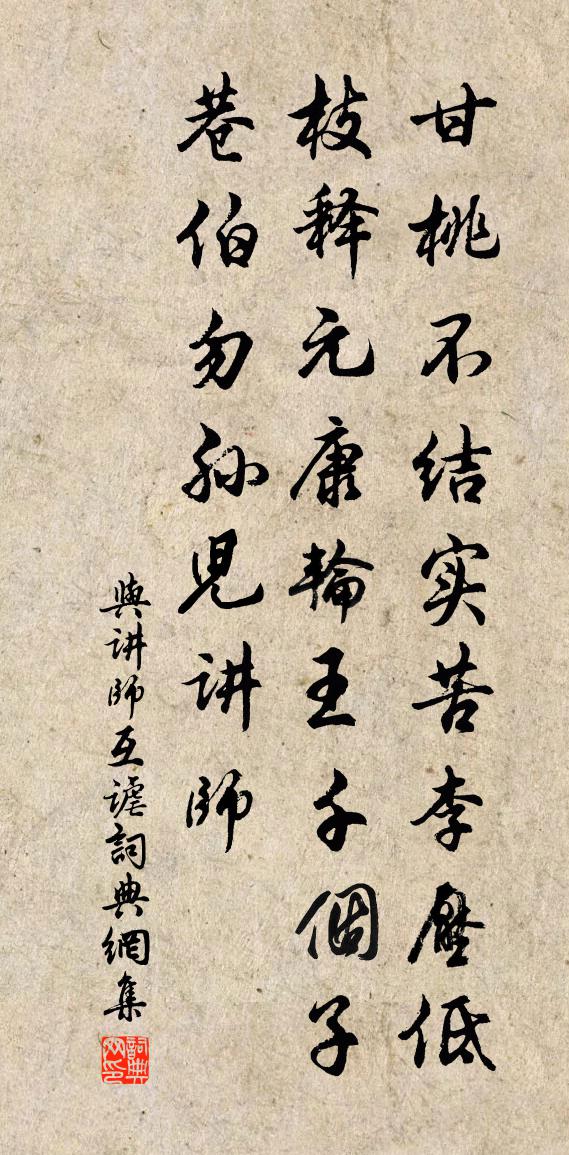 甘桃不结实苦李壓低
枝释元康輪王千個子
巷伯勿孙児讲師
與讲師互謔詞典網集
詞典网印